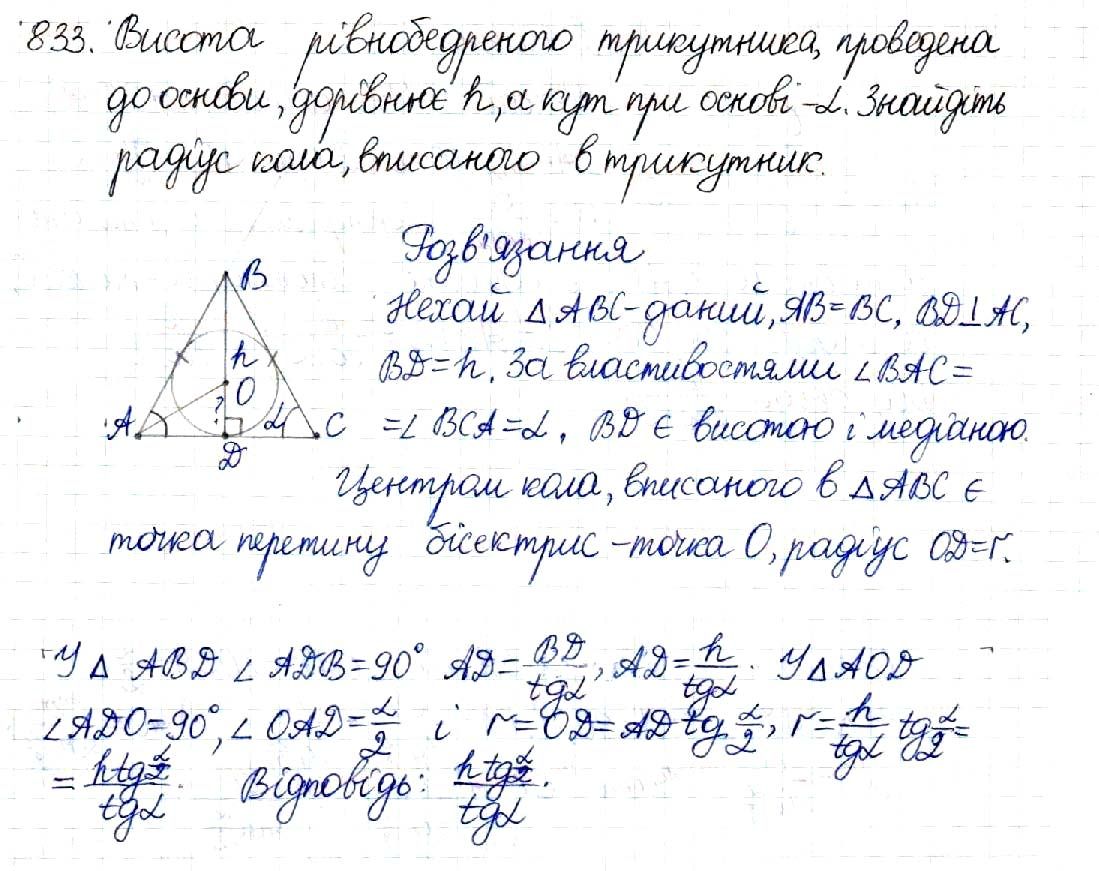 833. Висота рівнобедреного трикутника, проведена
до основи, дорівнює h, а кут при основі - α. Знайдіть
радіус кола, вписаного в трикутник.
Розв'язання
B
Нехай △ABC - даний, AB=BC, BD⊥AC,
h
BD=h. За властивостями ∠BAC=
O
?
A α C
=∠BCA=α, BD є висотою і медіаною.
D
Центром кола, вписаного в △ABC є
точка перетину бісектрис - точка O, радіус OD=r.
У △ ABD ∠ADB=90° AD=BD/tgα, AD=h/tgα. У △AOD
∠ADO=90°, ∠OAD=α/2 і r=OD=AD tg α/2, r=h/tgα tg α/2=
= h tg α/2 / tgα. Відповідь: h tg α/2 / tgα.